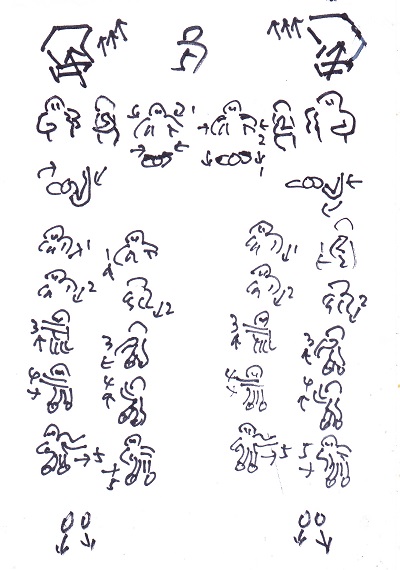 1
2
1
1 1 1
2 2 2 2
3 3 3 3
4 4 4 4
5 5 5 5